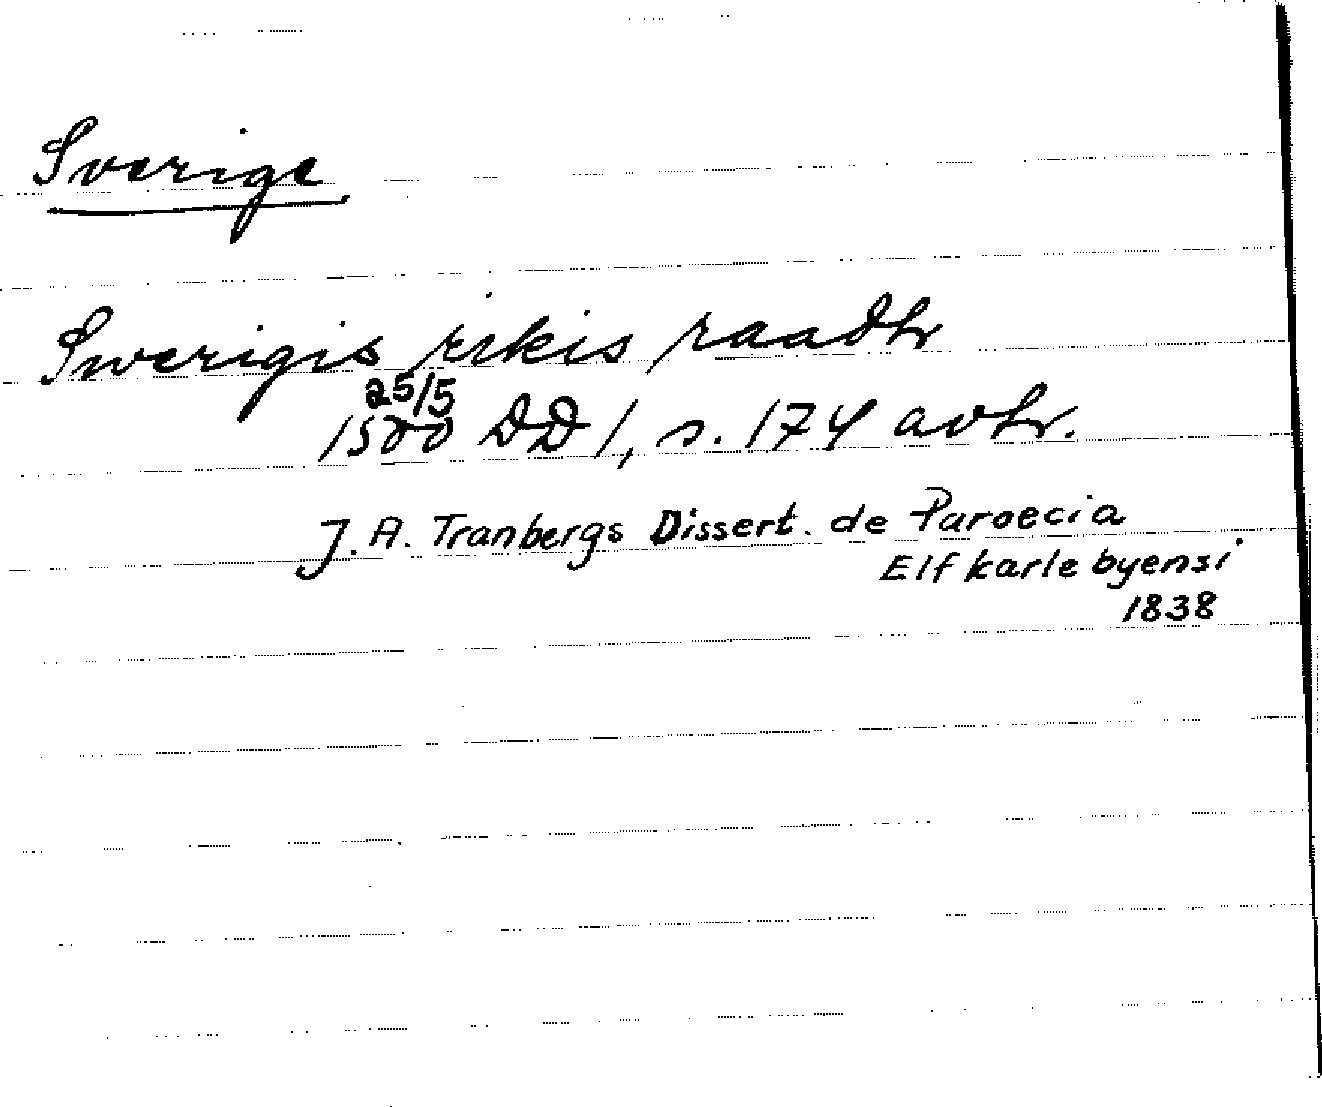 Sverige
Swerigis rikis raadh
25/5
1500 DD 1, s. 174 avtr.
J. A. Tranbergs Dissert. de Paroecia
Elfkarlebyensi
1838